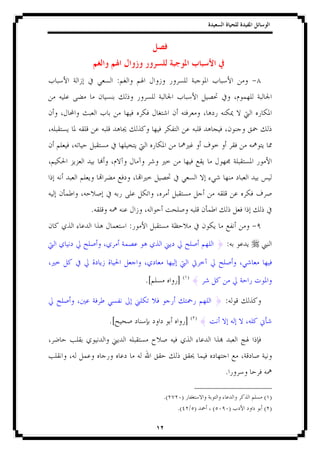 الوسائل المفيدة للحياة السعيدة
فصل
في الأسباب الموجبة للسرور وزوال الهم والغم
٨- ومن الأسباب الموجبة للسرور وزوال الهم والغم: السعي في إزالة الأسباب
الجالبة للهموم، وفي تحصيل الأسباب الجالبة للسرور وذلك بنسيان ما مضى عليه من
المكاره التي لا يمكنه ردها، ومعرفته أن اشتغال فكره فيها من باب العبث والمحال، وأن
ذلك حمق وجنون، فيجاهد قلبه عن التفكر فيها وكذلك يجاهد قلبه عن قلقه لما يستقبله،
مما يتوهمه من فقر أو خوف أو غيرهما من المكاره التي يتخيلها في مستقبل حياته، فيعلم أن
الأمور المستقبلة مجهول ما يقع فيها من خير وشر وآمال وآلام، وأنها بيد العزيز الحكيم،
ليس بيد العباد منها شيء إلا السعي في تحصيل خيراتها، ودفع مضراتها ويعلم العبد أنه إذا
صرف فكره عن قلقه من أجل مستقبل أمره، واتكل على ربه في إصلاحه، واطمأن إليه
في ذلك إذا فعل ذلك اطمأن قلبه وصلحت أحواله، وزال عنه همه وقلقه.
٩- ومن أنفع ما يكون في ملاحظة مستقبل الأمور: استعمال هذا الدعاء الذي كان
النبي ﷺ يدعو به: ﴿ اللهم أصلح لي ديني الذي هو عصمة أمري، وأصلح لي دنياي التي
فيها معاشي، وأصلح لي آخرتي التي إليها معادي، واجعل الحياة زيادة لي في كل خير،
والموت راحة لي من كل شر ﴾ (١) [رواه مسلم].
وكذلك قوله: ﴿ اللهم رحمتك أرجو فلا تكلني إلى نفسي طرفة عين، وأصلح لي
شأني كله، لا إله إلا أنت ﴾ (٢) [رواه أبو داود بإسناد صحيح].
فإذا لهج العبد هذا الدعاء الذي فيه صلاح مستقبله الديني والدنيوي بقلب حاضر،
ونية صادقة، مع اجتهاده فيما يحقق ذلك حقق الله له ما دعاه ورجاه وعمل له، وانقلب
همه فرحا وسرورا.
(١) مسلم الذكر والدعاء والتوبة والاستغفار (٢٧٢٠).
(٢) أبو داود الأدب (٥٠٩٠) ، أحمد (٤٢/٥).
١٢